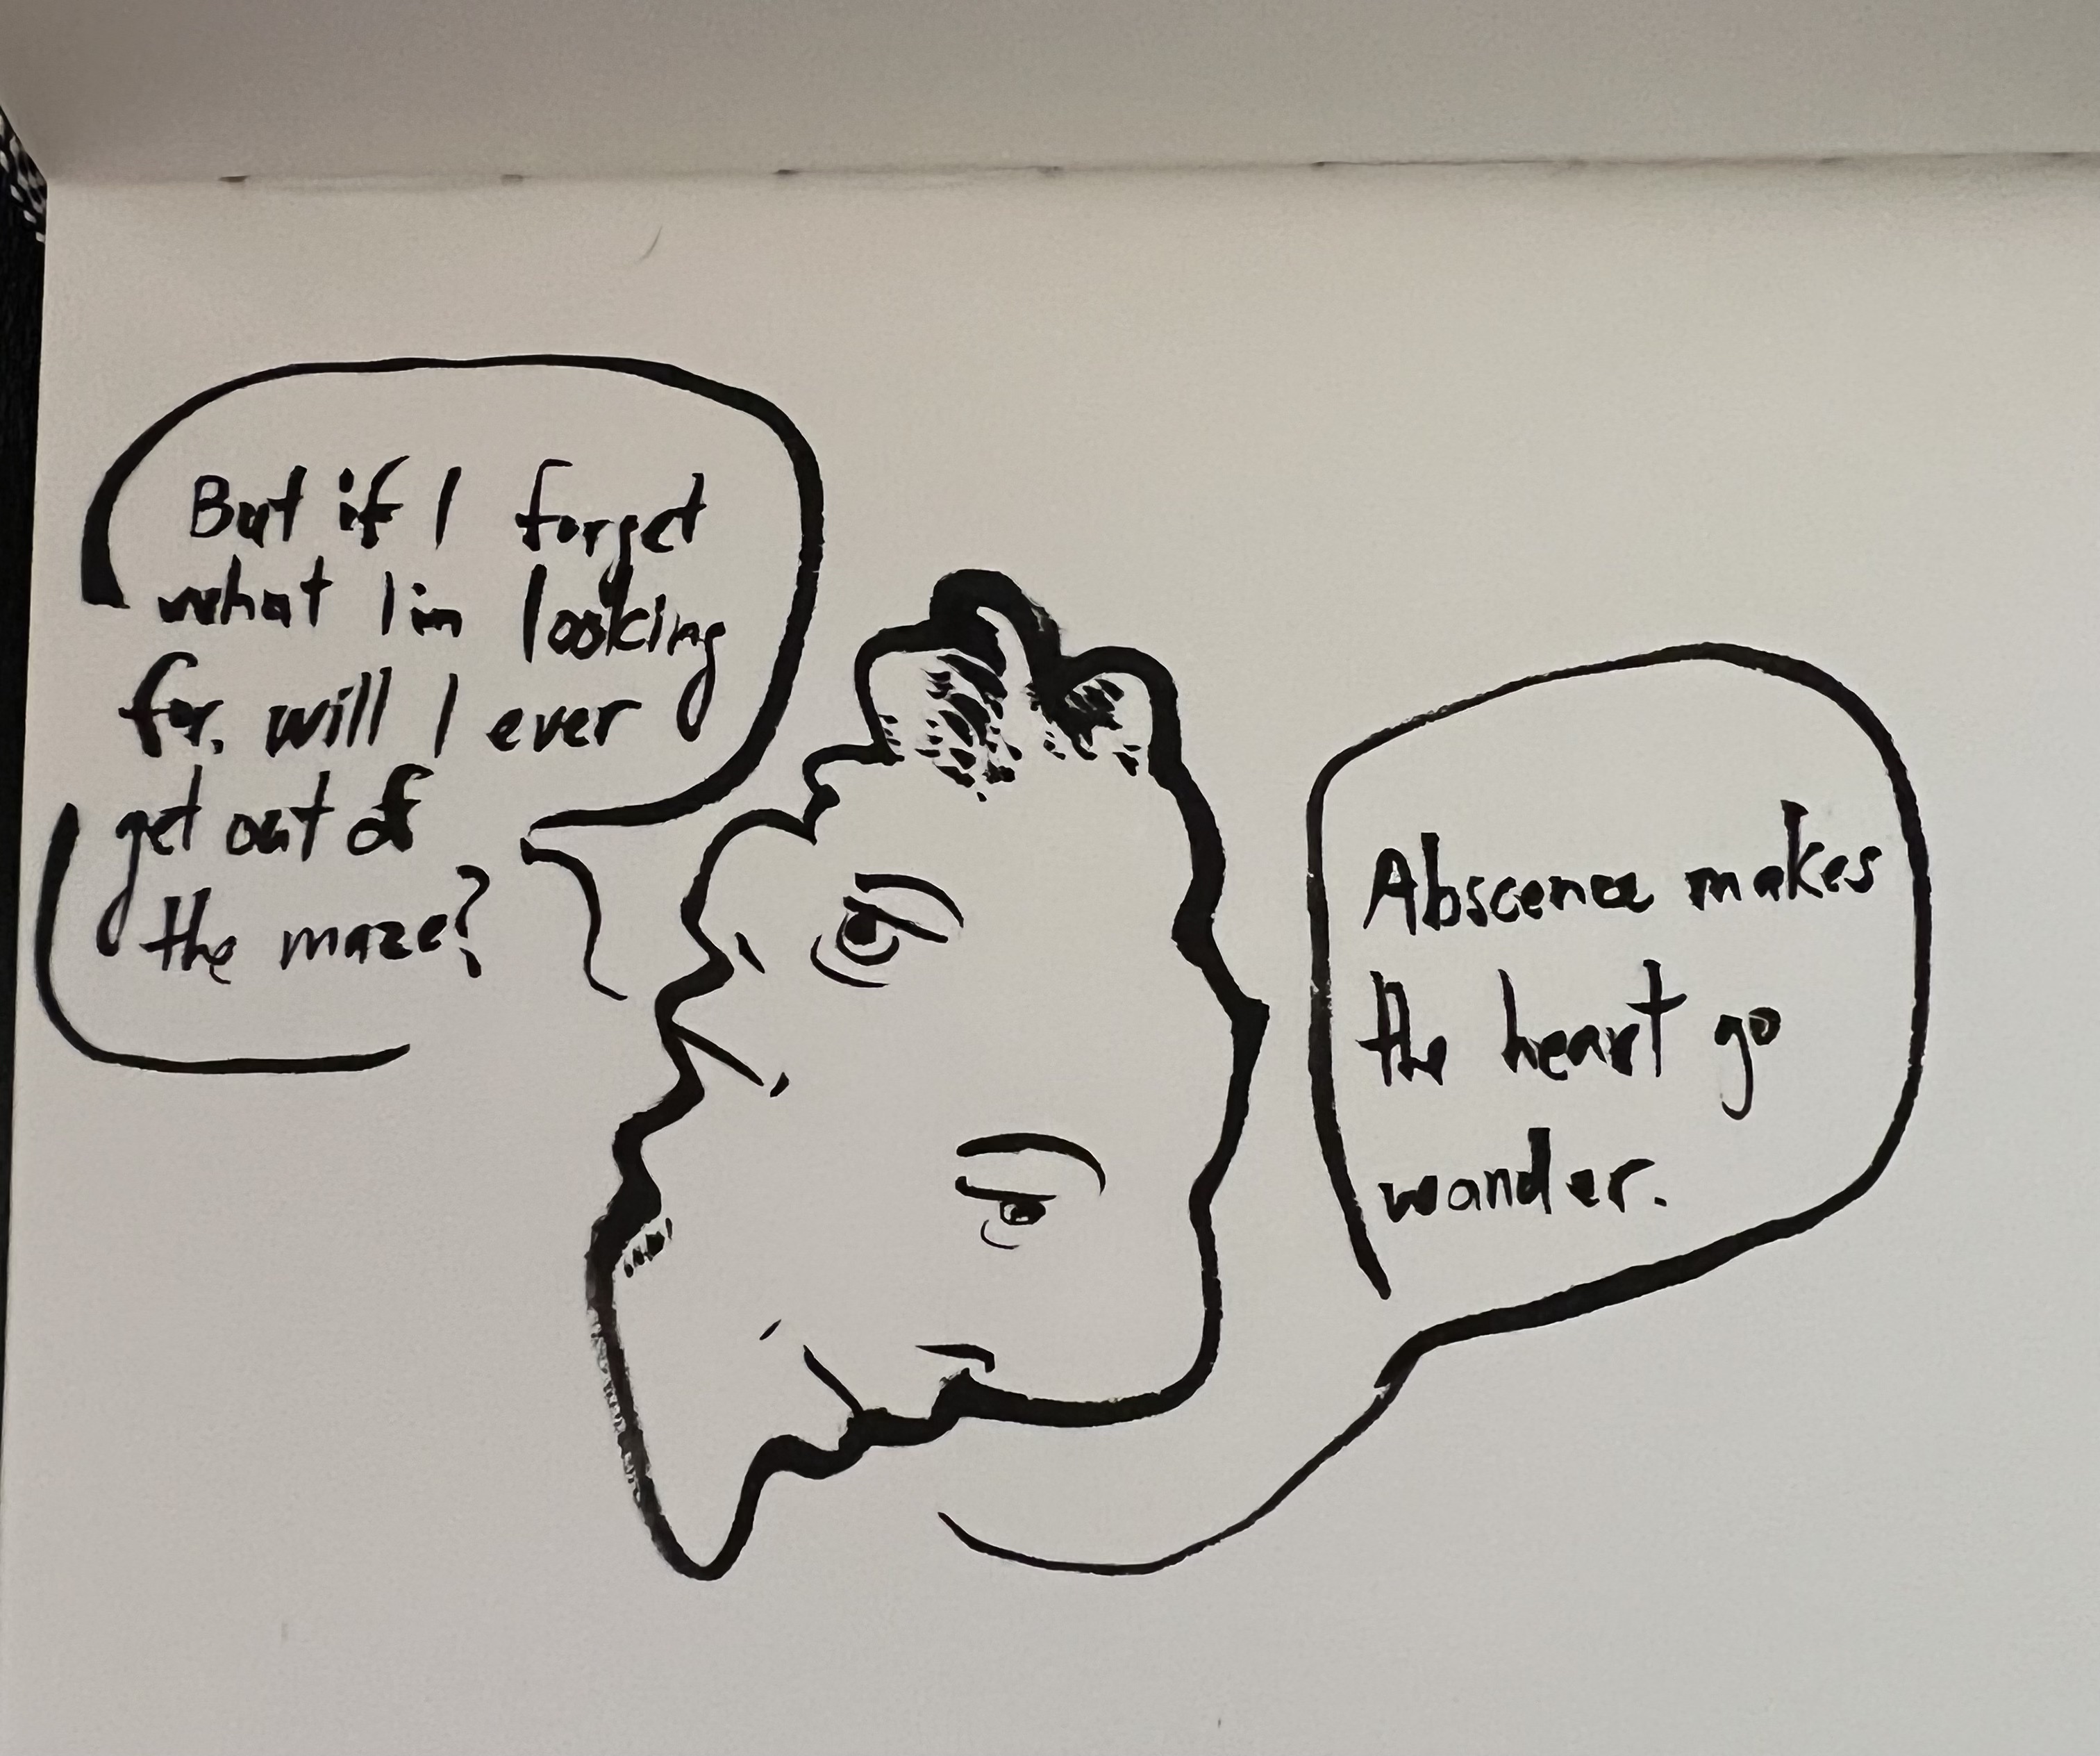 But if I forget
what I'm looking
for, will I ever
get out of
the maze?
Abscence makes
the heart go
wander.